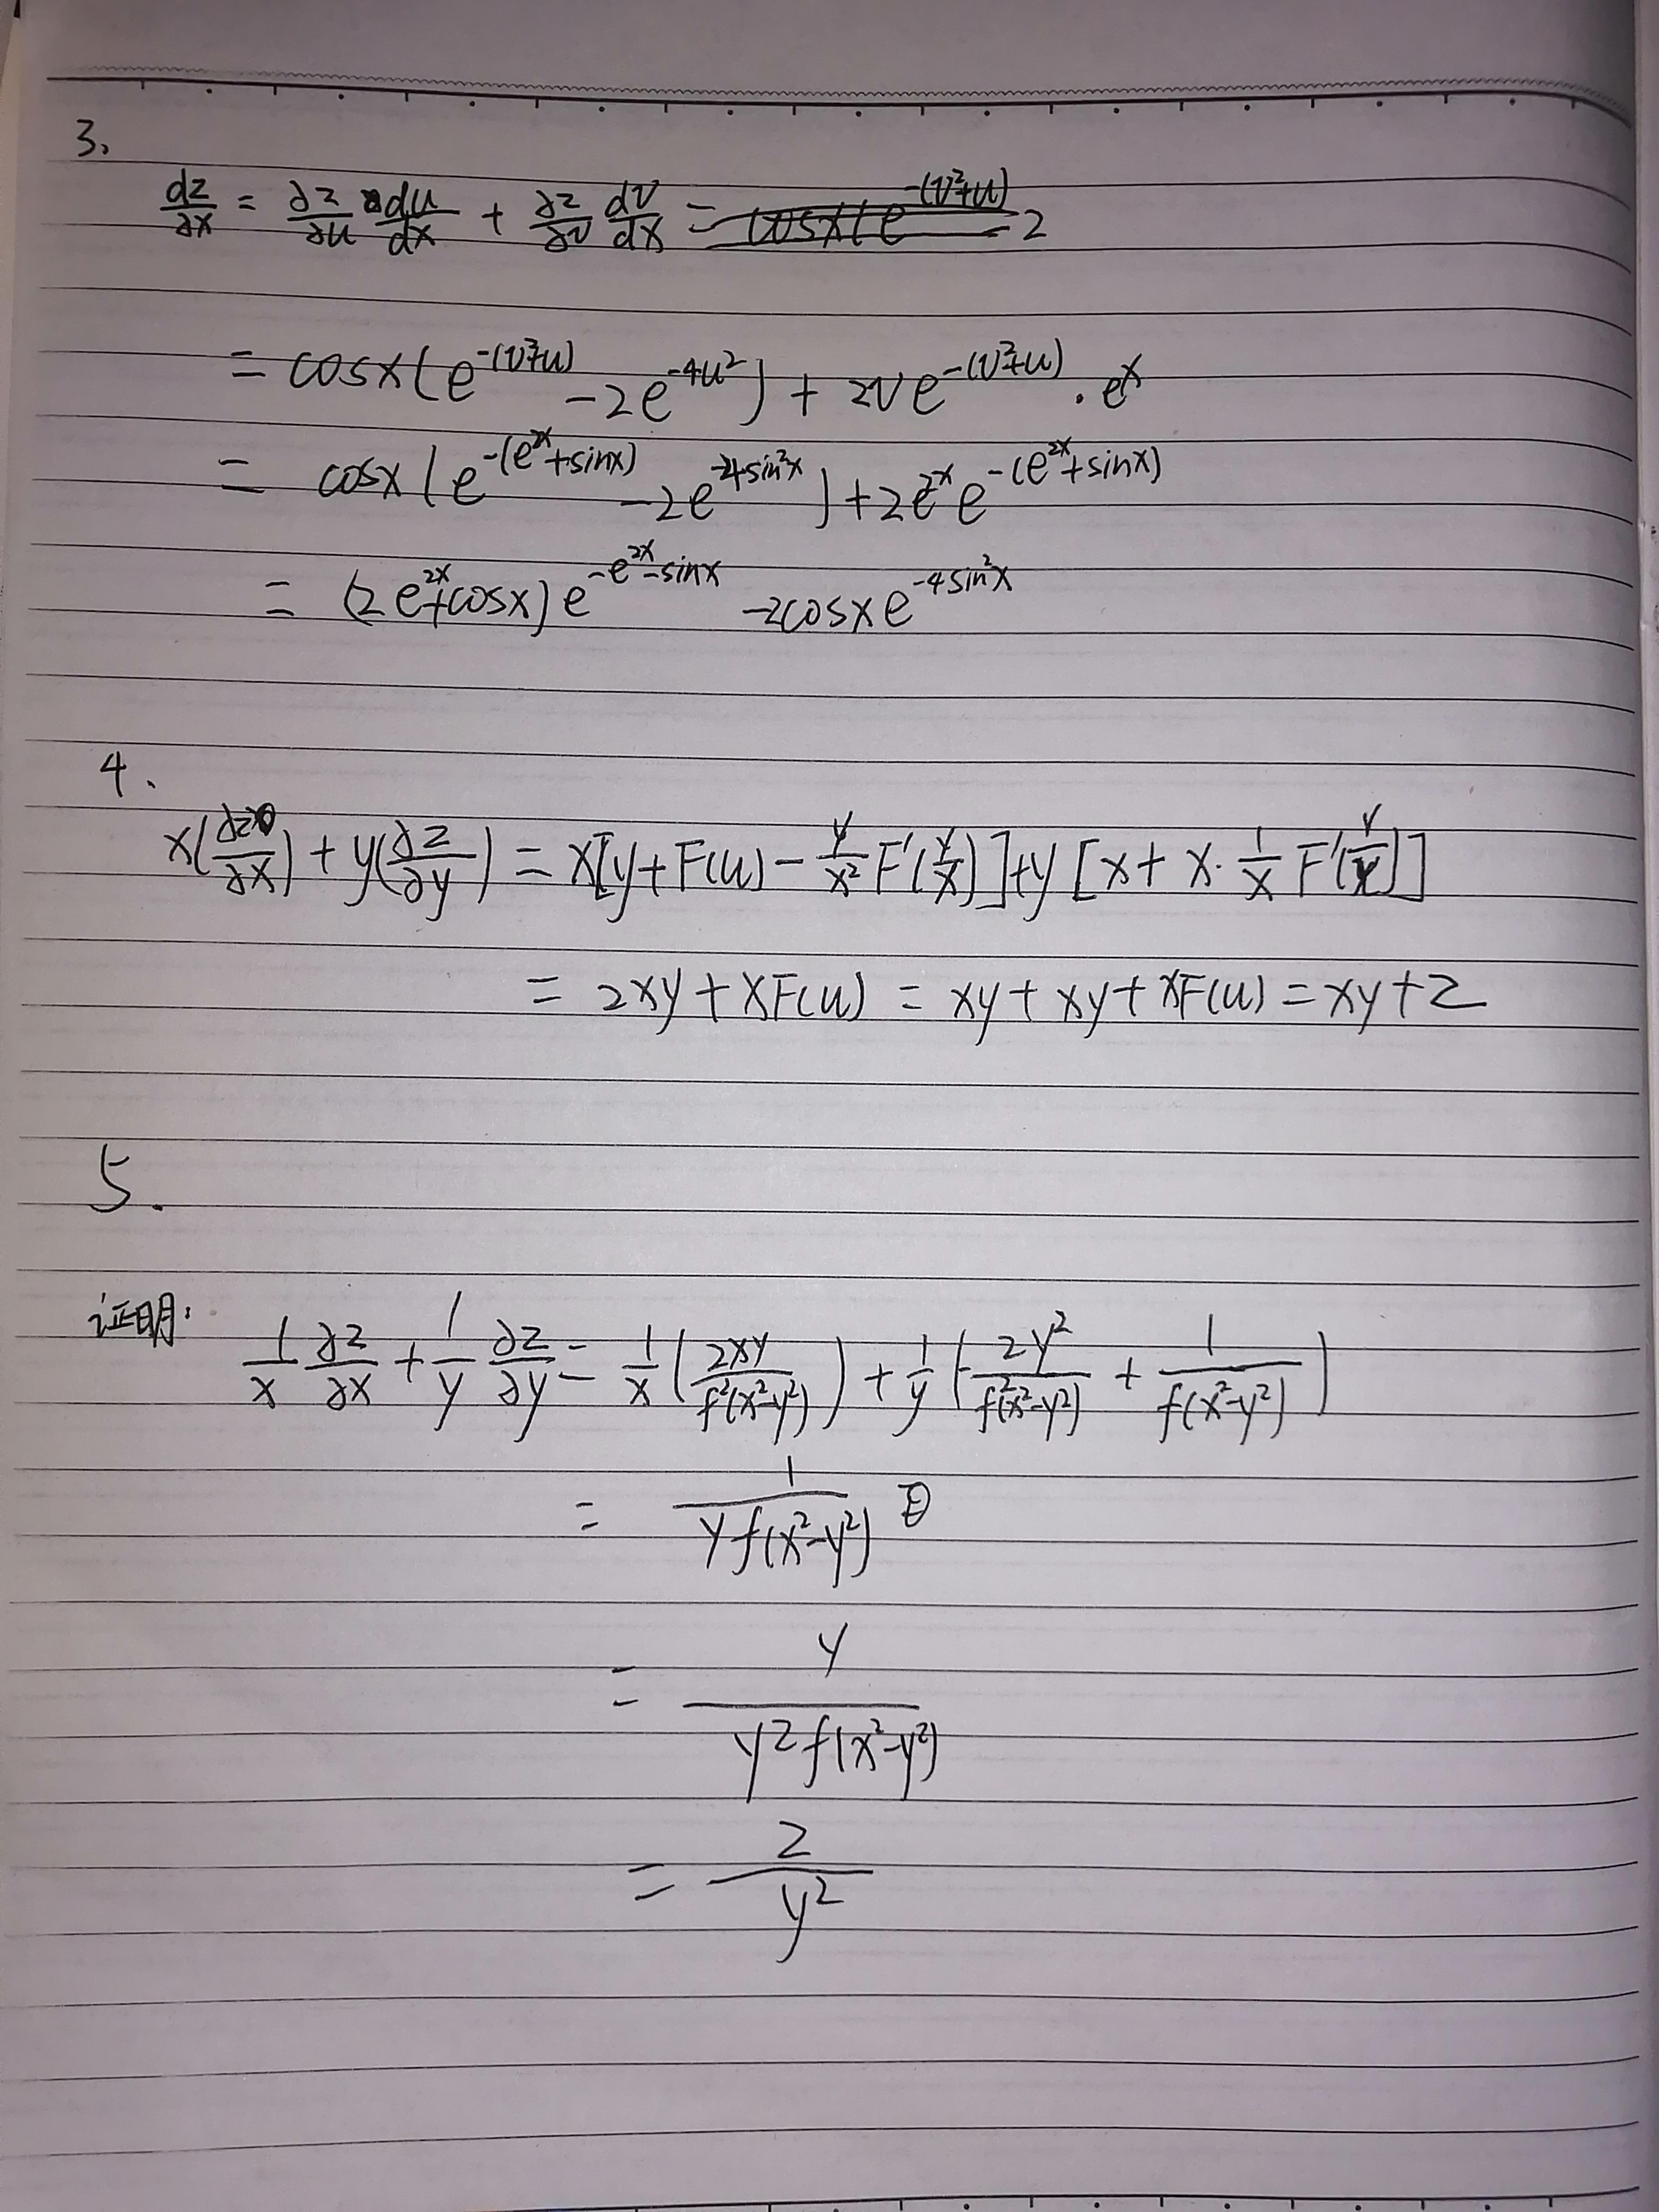 3.
dz/∂x = ∂z/∂u du/dx + ∂z/∂v dv/dx = cosx(e^-(v²+u) 2
= cosx(e^-(v²+u) - 2e^-4u²) + 2ve^-(v²+u) · e^x
= cosx(e^-(e^2x+sinx) - 2e^-4sin²x) + 2e^2x e^-(e^2x+sinx)
= (2e^2x+cosx)e^-e^2x-sinx - 2cosxe^-4sin²x
4.
x(∂z/∂x) + y(∂z/∂y) = x[y+F(u) - y/x² F'(y/x)] + y[x + x·1/x F'(y/x)]
= 2xy + xF(u) = xy + xy + xF(u) = xy + z
5.
证明:
1/x ∂z/∂x + 1/y ∂z/∂y = 1/x (2xy/f²(x²-y²)) + 1/y (-2y²/f²(x²-y²) + 1/f(x²-y²))
= 1/yf(x²-y²)
= y/y²f(x²-y²)
= z/y²